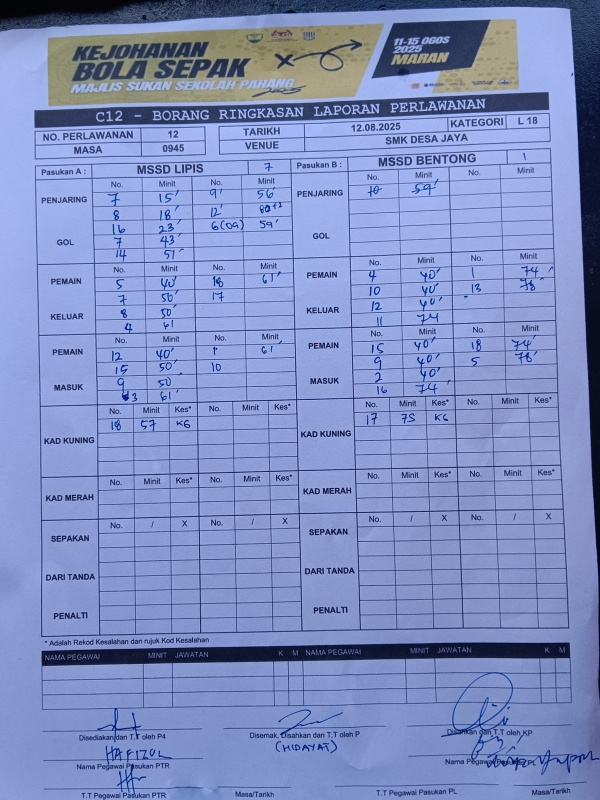 KEJOHANAN
BOLA SEPAK
MAJLIS SUKAN SEKOLAH PAHANG
11-15 OGOS
2025
MARAN
C12 - BORANG RINGKASAN LAPORAN PERLAWANAN
NO. PERLAWANAN 12 TARIKH 12.08.2025 KATEGORI L 18
MASA 0945 VENUE SMK DESA JAYA
Pasukan A : MSSD LIPIS 7 Pasukan B : MSSD BENTONG 1
No. Minit No. Minit No. Minit No. Minit
PENJARING 7 15' 9' 56' PENJARING 10 59'
8 18' 12'
16 23' 6(OG) 59'
GOL 7 43' GOL
14 51'
No. Minit No. Minit No. Minit No. Minit
PEMAIN 5 40' 18 61' PEMAIN 4 40' 1 74'
7 50' 17 10 40' 13 78'
KELUAR 8 50' KELUAR 12 40'
4 61 11 74
No. Minit No. Minit No. Minit No. Minit
PEMAIN 12 40' 1 61' PEMAIN 15 40' 18 74'
15 50' 10 9 40' 5 78'
MASUK 9 50' MASUK 2 40'
3 61' 16 74'
No. Minit Kes* No. Minit Kes* No. Minit Kes* No. Minit Kes*
KAD KUNING 18 57 K6 KAD KUNING 17 75 K6
No. Minit Kes* No. Minit Kes* No. Minit Kes* No. Minit Kes*
KAD MERAH KAD MERAH
No. / X No. / X No. / X No. / X
SEPAKAN SEPAKAN
DARI TANDA DARI TANDA
PENALTI PENALTI
* Adalah Rekod Kesalahan dan rujuk Kod Kesalahan
NAMA PEGAWAI MINIT JAWATAN K M NAMA PEGAWAI MINIT JAWATAN K M
Disediakan dan T.T oleh P4 Disemak, Disahkan dan T.T oleh P Disahkan dan T.T oleh KP
HAFIZUL (HIDAYAT)
Nama Pegawai Pasukan PTR Nama Pegawai Pasukan PL
T.T Pegawai Pasukan PTR Masa/Tarikh T.T Pegawai Pasukan PL Masa/Tarikh